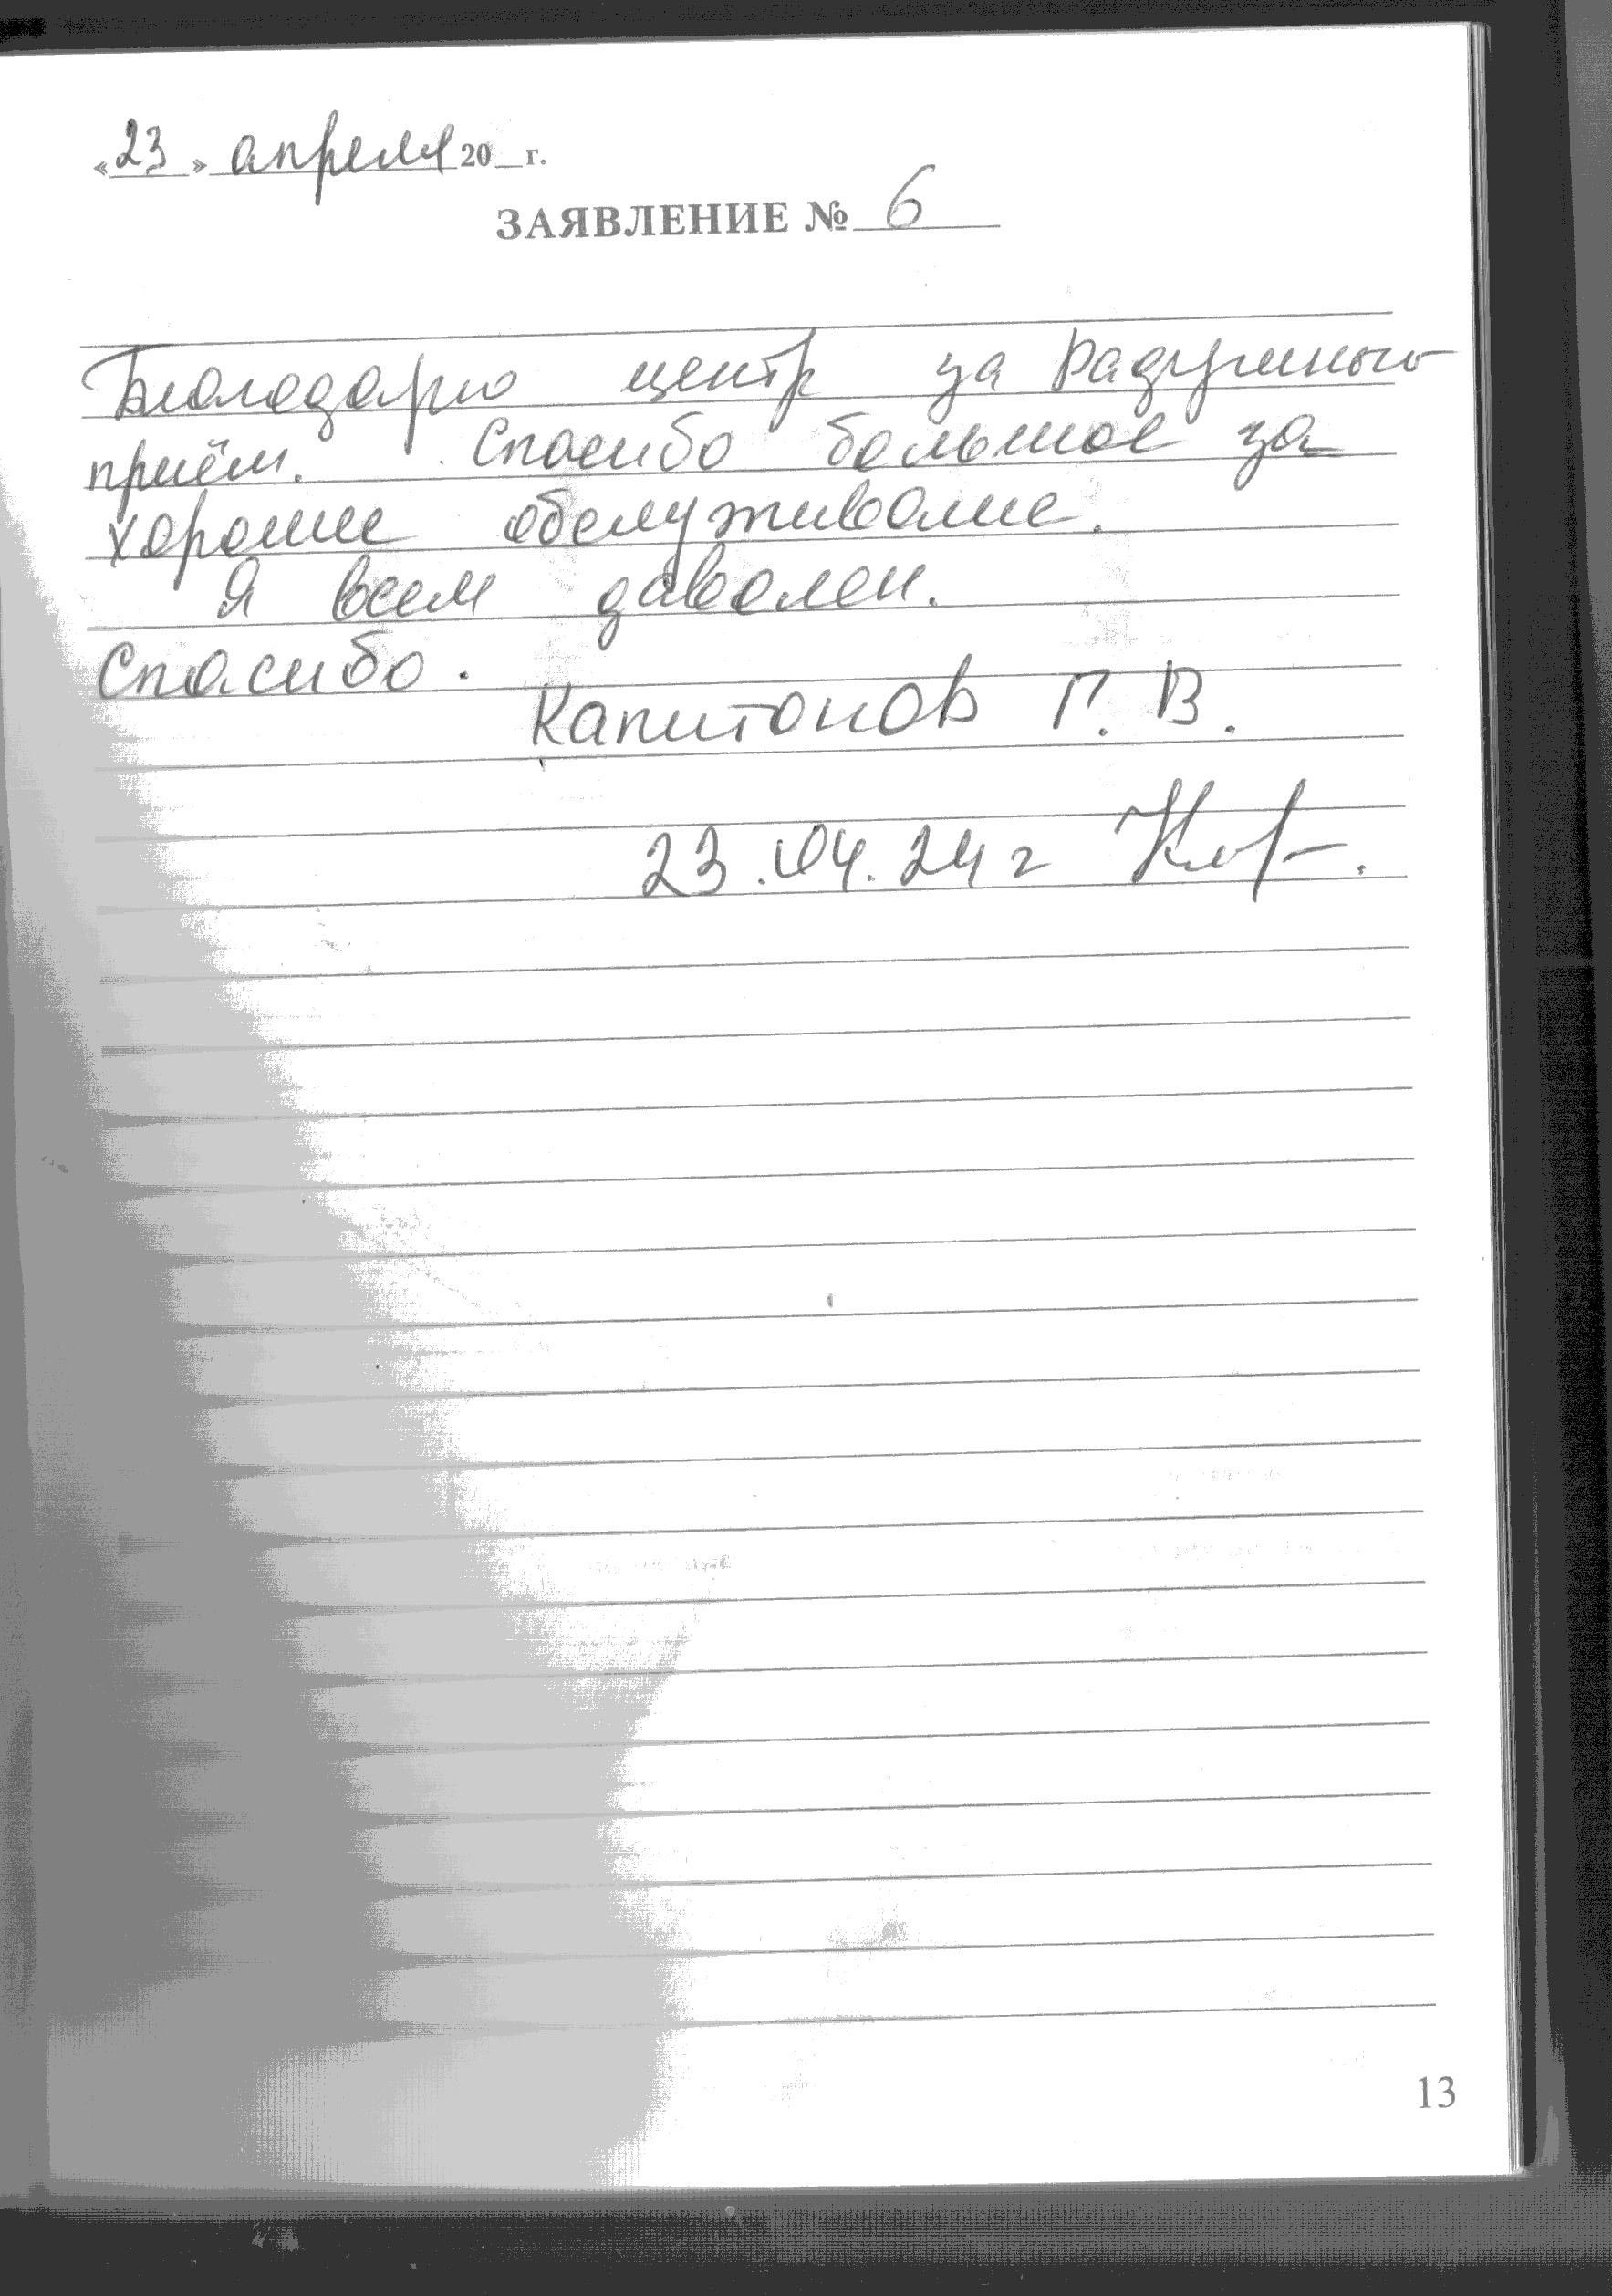 «23» апреля 20__г.
ЗАЯВЛЕНИЕ № 6
Благодарю центр за радушный
приём. Спасибо большое за
хорошие обслуживание.
Я всем даволен.
Спасибо.
Капитонов Г. В.
23.04.24 г
13